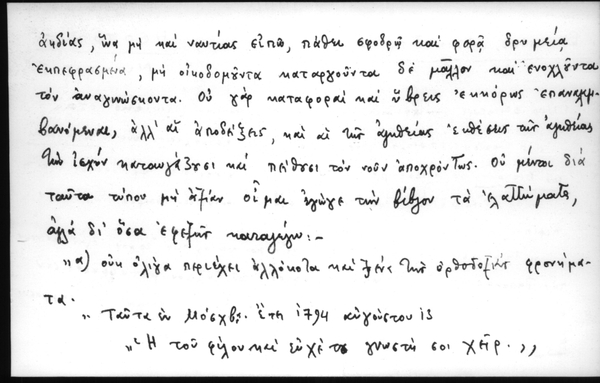 ἀηδίας, ἵνα μὴ καὶ ναυτίας εἴπω, πάθει σφοδρῷ καὶ φορᾷ δριμείᾳ
ἐκπεφρασμένα, μὴ οἰκοδομοῦντα καταργοῦντα δὲ μᾶλλον καὶ ἐνοχλοῦντα
τὸν ἀναγινώσκοντα. Οὐ γὰρ καταφοραὶ καὶ ὕβρεις ἐκκόρως ἐπαναλαμ-
βανόμεναι, ἀλλ' αἱ ἀποδείξεις, καὶ αἱ τῆς ἀληθείας ἐκθέσεις τῆς ἀληθείας
τὴν ἰσχὺν καταυγάζουσι καὶ πείθουσι τὸν νοῦν ἀποχρόντως. Οὐ μέντοι διὰ
ταῦτα τύπου μὴ ἀξίαν οἶμαι ἔγωγε τὴν βίβλον τὰ ἐλαττώματα,
ἀλλὰ δι' ὅσα ἐφεξῆς καταλέγω:-
"α) οὐκ ὀλίγα περιέχει ἀλλόκοτα καὶ ξένα τῆς ὀρθοδοξίας φρονήμα-
τα.
"Ταῦτα ἐν Μόσχᾳ. Ἔτει 1794 αὐγούστου 13
"Ἡ τοῦ φίλου καὶ εὐχέτου γνωστή σοι χείρ."